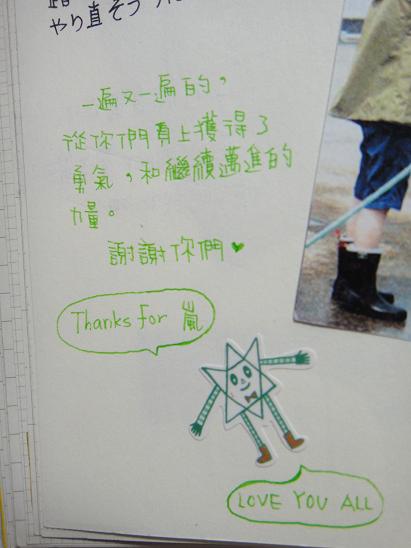 やり直そう
一遍又一遍的，
從你們身上獲得了
勇氣，和繼續邁進的
力量。
謝謝你們♥
Thanks For 嵐
LOVE YOU ALL